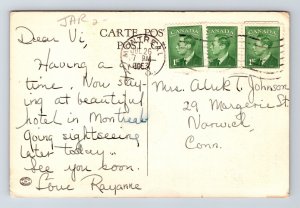 JAR 2
CARTE POS
POST CA
MONTREAL
PM
CANADA CANADA CANADA
Dear Vi,
Having a
time. Now stay-
ing at beautiful
hotel in Montreal
Going sightseeing
later today.
See you soon.
Love Rayanne
Mrs. Aluk T. Johnson
29 Margerie St
Norwich,
Conn.